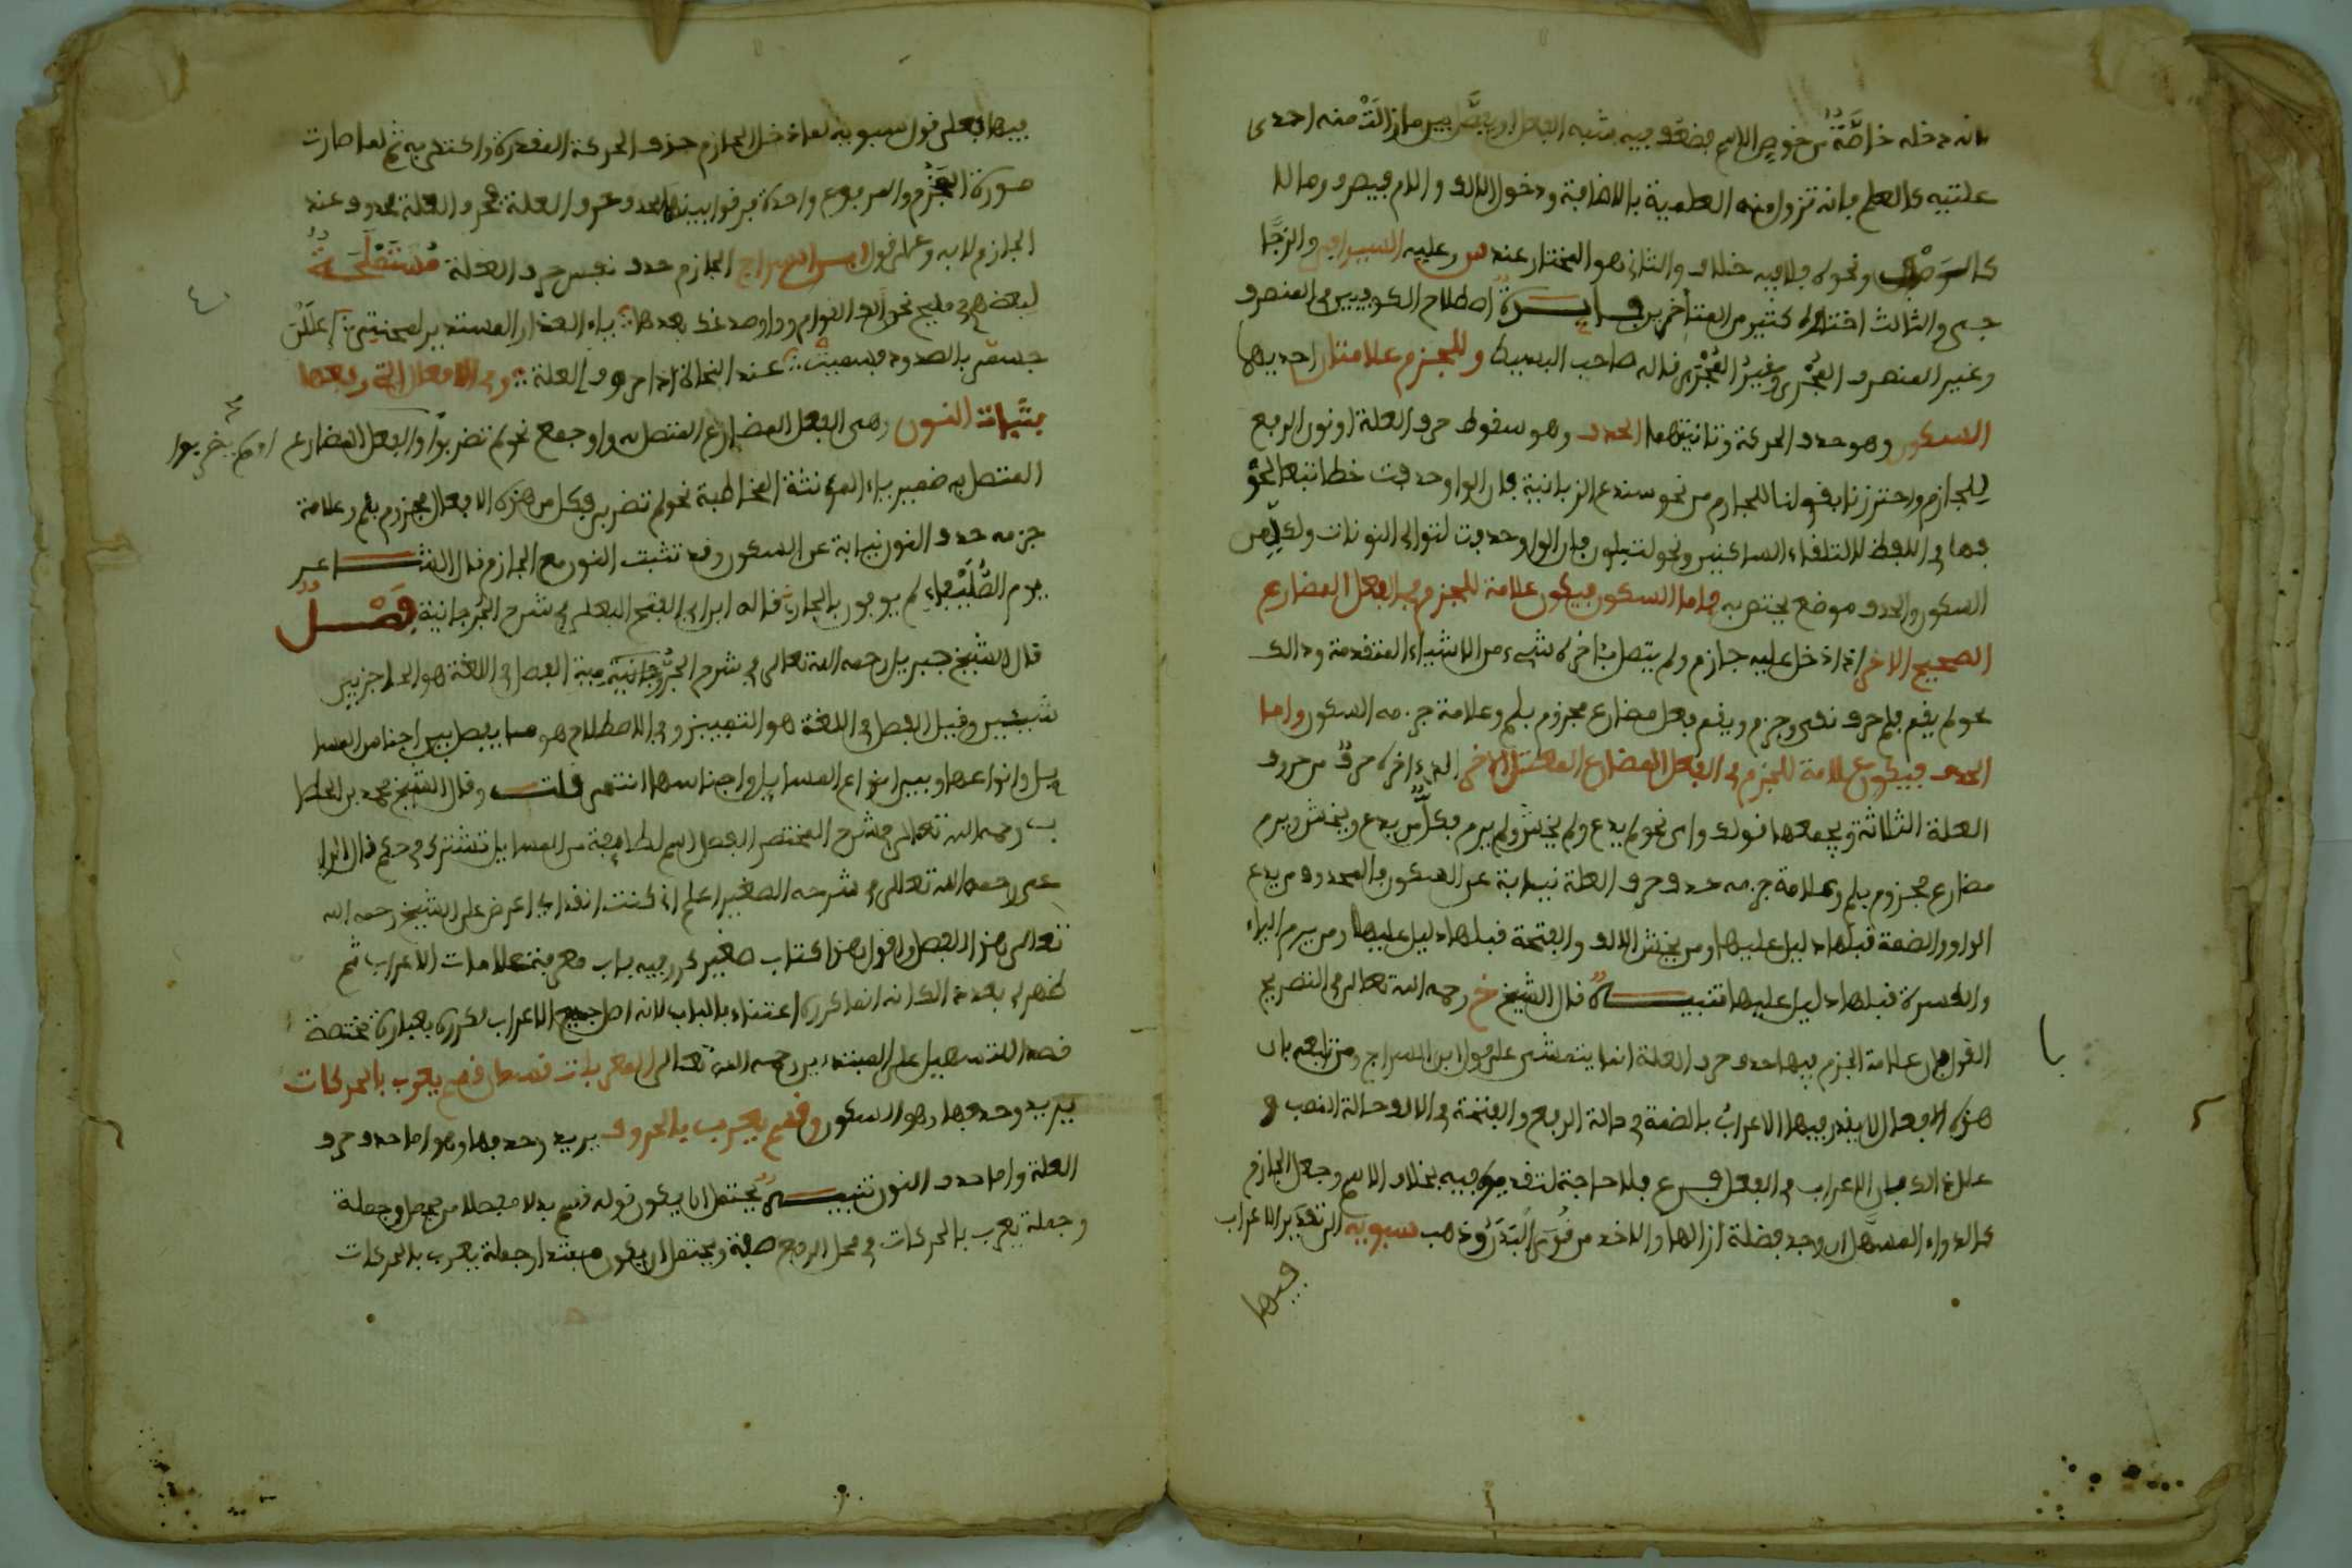 بانه دخله خاصة من خوص الاسم فضعف فيه شبه الفعل او يفصل بين ما زالت منه احدى
علتيه كالعلم فانه تزول منه العلمية بالاضافة ودخول الالف والام فيصرف وما لا
ونحوه فلا فيه خلاف والثاني هو المختار عند س وعليه السيرافي والزجا
جي والثالث اختاره كثير من المتأخرين فايدة اصطلاح الكوفيين في المنصرف
وغير المنصرف المجرى وغير المجرى قاله صاحب البسيط وللجزم علامتان احديهما
السكون وهو حذف الحركة وثانيتهما الحذف وهو سقوط حرف العلة او نون الرفع
للجازم واحترزنا بقولنا للجازم من نحو سندع الزبانية فان الواو حذفت خطا تبعا لحذ
فها في اللفظ لالتقاء الساكنين ونحو لتبلون فان الواو حذفت لتوالي النونات ولكل من
السكون والحذف موضع يختص به فاما السكون فيكون علامة للجزم في الفعل المضارع
الصحيح الاخر اذا دخل عليه جازم ولم يتصل باخره شيء من الاشياء المتقدمة وذالك
نحو لم يقم فلم حرف نفي وجزم ويقم فعل مضارع مجزوم بلم وعلامة جزمه السكون واما
الحذف فيكون علامة للجزم في الفعل المضارع المعتل الاخر الذي اخره حرف من حروف
العلة الثلاثة ويجمعها قولك واى نحو لم يدع ولم يخش ولم يرم فكل من يدع ويخش ويرم
مضارع مجزوم بلم وعلامة جزمه حذف حرف العلة نيابة عن السكون فالمحذوف من يدع
الواو والضمة قبلها دليل عليها ومن يخش الالف والفتحة قبلها دليل عليها ومن يرم الياء
والكسرة قبلها دليل عليها تنبيه قال الشيخ خ رحمه الله تعالى في التصريح
القول بان علامة الجزم فيها حذف حرف العلة انما يتمشى على قول ابن السراج ومن تابعه بان
هذه الافعال لا يقدر فيها الاعراب بالضمة في حالة الرفع والفتحة في الالف حالة النصب و
علل ذالك بان الاعراب في الفعل فرع فلا حاجة لتقديره فيه بخلاف الاسم وجعل الجازم
كالدواء المسهل ان وجد فضلة ازالها والا اخذ من قوى البدن وذهب سبويه الى تقدير الاعراب
فيها
فيها فعلى قول سبويه لما دخل الجازم حذف الحركة المقدرة واكتفى به ثم لما صارت
صورة المجزوم والمرفوع واحدة فرقوا بينهما بحذف حرف العلة فحرف العلة محذوف عند
الجازم لا به وعلى قول ابن السراج الجازم حذف نفس حرف العلة مستملحة
لبعضهم في مليح نحو الف القوام وواو صدغ بعدها ياء العذار المستدير لمحنتي اعللن
جسمي بالصدود فسميت عند النحاة اذا حروف العلة وفي الافعال التي رفعها
بثبات النون وهي الفعل المضارع المتصل به واو جمع نحو لم تضربوا والفعل المضارع او لم يضربوا
المتصل به ضمير ياء المؤنثة المخاطبة نحو لم تضربي فكل من هذه الافعال مجزوم بلم وعلامة
جزمه حذف النون نيابة عن السكون وقد تثبت النون مع الجازم قال الشاعر
يوم الصليفاء لم يوفون بالجار قاله ابن ابي الفتح البعلي في شرح الجرجانية فصل
قال الشيخ جبريل رحمه الله تعالى في شرح الجرجانية الفصل في اللغة هو الحاجز بين
شيئين وقيل الفصل في اللغة هو التمييز وفي الاصطلاح هو ما يفصل بين اجناس المسا
يل وانواعها وبين انواع المسايل واجناسها انتهى قلت وقال الشيخ محمد بن الحطا
ب رحمه الله تعالى في شرح المختصر الفصل اسم لطايفة من المسايل تشترك في حكم قال الرا
عي رحمه الله تعالى في شرحه الصغير اعلم اني كنت انقد او اعرض على الشيخ رحمه الله
تعالى هذا الفصل واقول هذا كتاب صغير كرر فيه باب معرفة علامات الاعراب ثم
ظهر لي بعد ذالك انه انما كرره اعتناء بالباب لانه اصل جميع الاعراب فكرره بعبارة مختصة
قصد التسهيل على المبتدءين رحمه الله تعالى المعربات قسمان قسم يعرب بالحركات
يريد وحذفها وهو السكون وقسم يعرب بالحروف يريد وحذفها وهو اما حذف حرف
العلة واما حذف النون تنبيه يحتمل ان يكون قوله قسم بدلا مفصلا من مجمل وجملة
وجملة يعرب بالحركات في محل الرفع صفة ويحتمل ان يكون مبتدا وجملة يعرب بالحركات